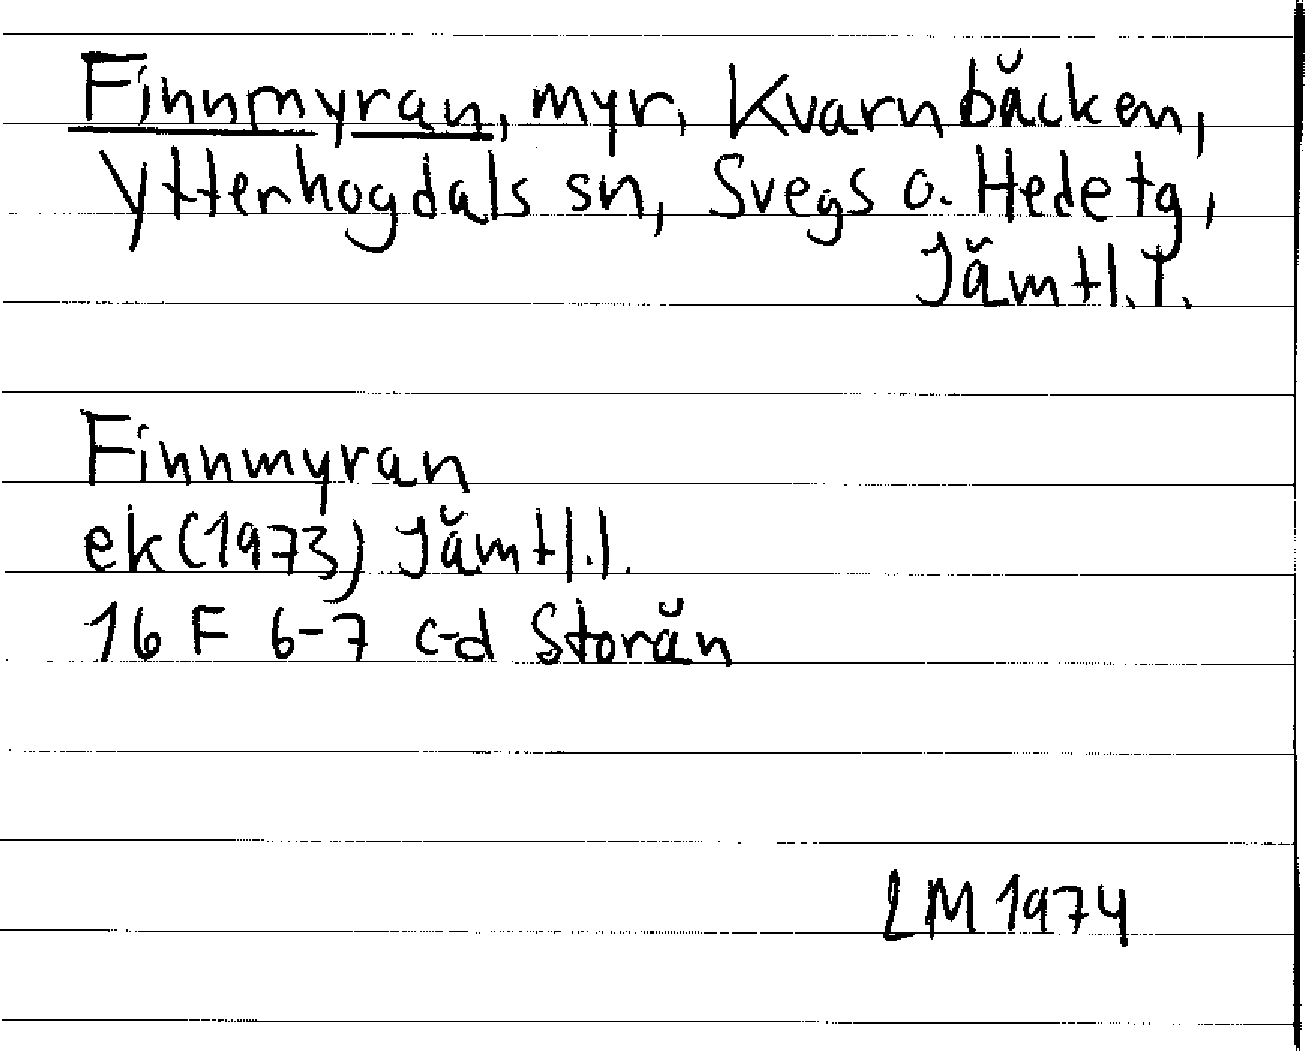 Finnmyran, myr, Kvarnbäcken,
Ytterhogdals sn, Svegs o. Hede tg,
Jämtl. l.
Finnmyran
ek (1973) Jämtl. l.
16 F 6-7 c-d Storån
LM 1974